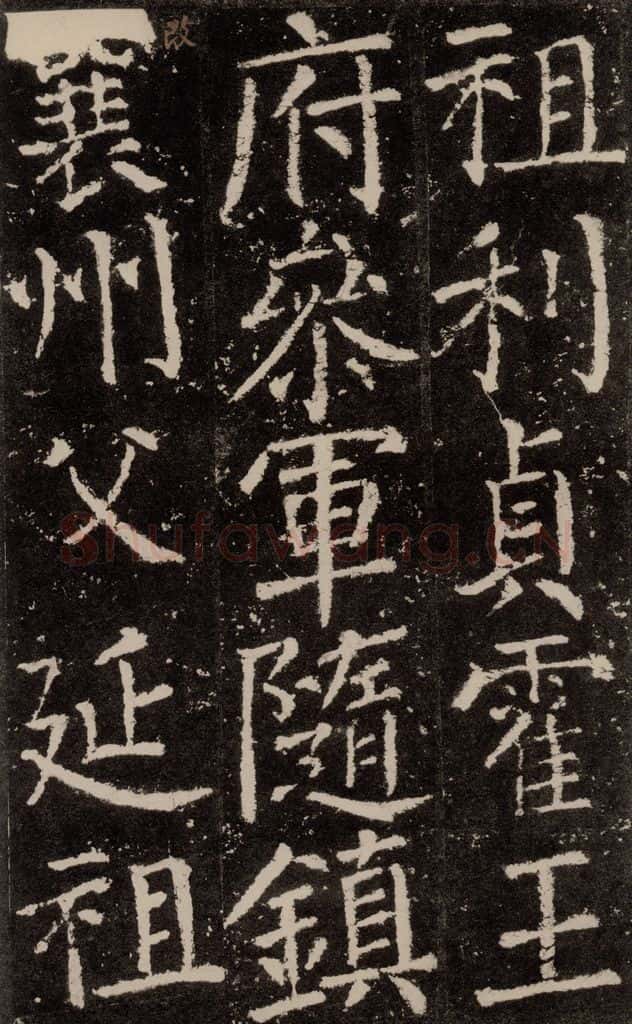 祖利貞霍王
府叅軍隨鎮
襄州父延祖
改
Shufawang.CN